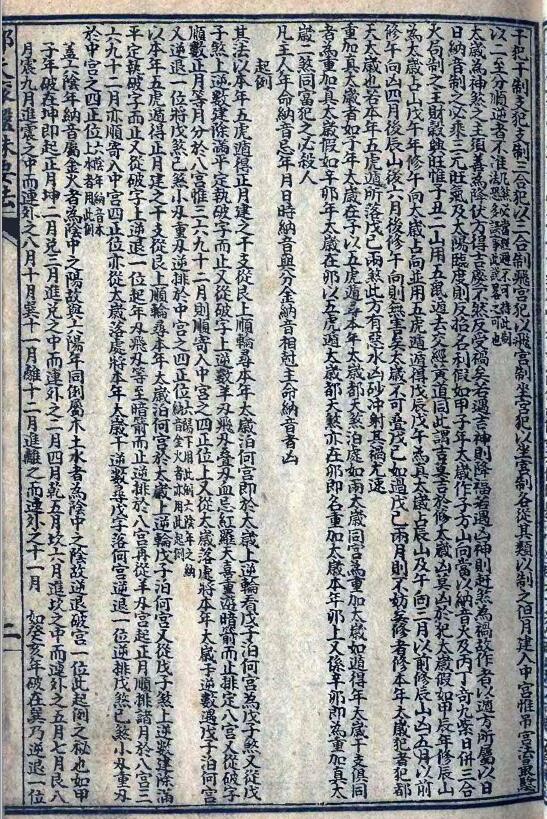 干犯干制支犯支制三合犯以三合制飛宮犯以飛宮制坐宮犯以坐宮制各從其類以制之但月建入中宮惟吊宮
以二至分順逆者不准
太歲為神煞之主須善為降伏方得吉慶不然反受禍矣若遇吉神則降福若遇凶神則赶煞為禍故作者以遁方所屬以日
日納音制之必乘三元旺氣及太陽臨度則反招名利假如甲子年太歲作子方山向當以納音火及丙丁奇九紫日併三合
火局制之主財穀興旺惟子丑二山用五鼠遁去交經再遁同此謂吉莫吉於修太歲凶莫凶於犯太歲假如甲辰年修辰山
為太歲占山戊午年修午向為太歲上向並用五虎遁遁得戊辰戊午為真太歲占辰山及午向三月以前修辰山凶五月以前
修午向凶四月後辰山後六月後修午向則無害矣太歲不可疊戊己如過戊己兩月則不妨矣修者修本年太歲犯者犯都
天太歲也若本年五虎遁所落戊己兩煞此方有惡水凶砂沖射其禍尤速
重加真太歲者如子年太歲在子以五虎遁尋本年太歲都天煞泊處如兩太歲同宮為重加太歲如遁得年太歲干支俱同
者為重加真太歲假如辛卯年太歲在卯以五虎遁太歲都天煞亦在卯即名重加太歲本年卯上又係辛卯即為重加真太
歲二煞同當犯之必殺人
凡主人年命納音忌年月日時納音與分金納音相剋主命納音者凶
起例
其法以本年五虎遁得正月建之干支從艮上順輪尋本年太歲泊何宮即於太歲上逆輪看戊子泊何宮為戊子煞又從戊
子煞上逆數建除滿平定執破字而正又從破字上逆數羊刃飛刃疊刃血忌紅羅天喜重遊暗箭而止排定八宮又從破字
順數正月等月分於八宮惟三六九十二月則順寄入中宮之四正位上又從太歲落處將本年太歲干逆數遇戊子泊何宮
又逆退一位將戊煞己煞小刃重刃逆排於中宮之四正位
以本年五虎遁得正月建之干支從艮上順輪尋本年太歲泊何宮於太歲上逆輪戊子泊何宮又從戊子煞上逆數建除滿
平定執破字而止又從破字上逆退一位起年刃飛刃等至暗箭而止逆排於八宮再從羊刃宮起正月順排諸月於八宮三
六九十二月亦順寄八中宮四正位亦從太歲落處將本年太歲干逆數尋戊子落何宮逆退一位逆排戊煞己煞小刃重刃
於中宮之四正位上
蓋六陰年納音屬金火者為陰中之陽故與六陽年同倒屬木土水者為陰中之陰故逆退破宮一位此起例之秘也如甲
子年破在坤即起正月坤二月兌三月進兌之中而連外之二月四月乾五月坎六月進坎之中而連外之五月七月艮八
月震九月進震之中而連外之八月十月巽十一月離十二月進離之而連外之十一月 如癸亥年破在巽乃逆退一位
二